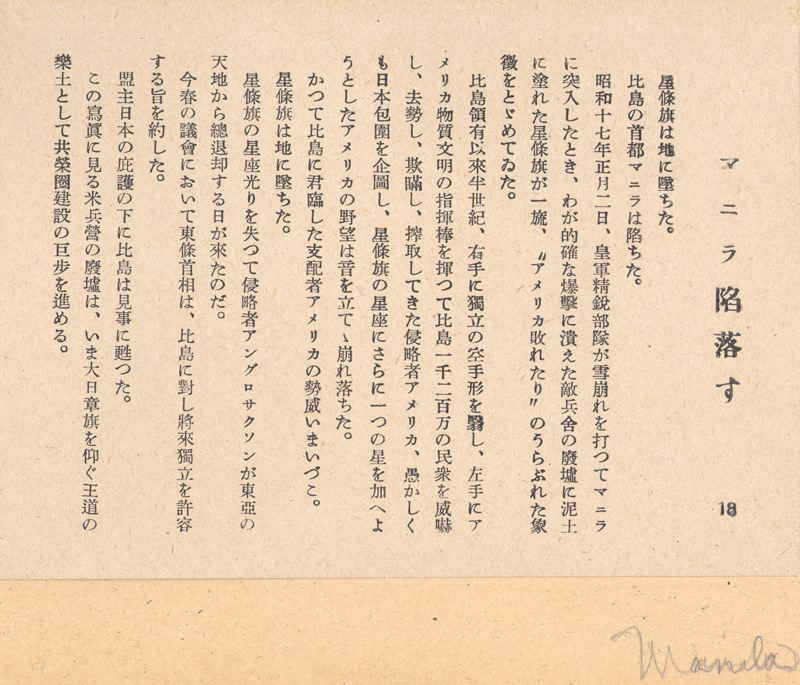 マニラ陷落す 18
星條旗は地に墜ちた。
比島の首都マニラは陷ちた。
昭和十七年正月二日、皇軍精銳部隊が雪崩れを打つてマニラ
に突入したとき、わが的確な爆擊に潰えた敵兵舍の廢墟に泥土
に塗れた星條旗が一旒、〃アメリカ敗れたり〃のうらぶれた象
徵をとゞめてゐた。
比島領有以來半世紀、右手に獨立の空手形を翳し、左手にア
メリカ物質文明の指揮棒を揮つて比島一千二百万の民衆を威嚇
し、去勢し、欺瞞し、搾取してきた侵略者アメリカ、愚かしく
も日本包圍を企圖し、星條旗の星座にさらに一つの星を加へよ
うとしたアメリカの野望は音を立てゝ崩れ落ちた。
かつて比島に君臨した支配者アメリカの勢威いまいづこ。
星條旗は地に墜ちた。
星條旗の星座光りを失つて侵略者アングロサクソンが東亞の
天地から總退却する日が來たのだ。
今春の議會において東條首相は、比島に對し將來獨立を許容
する旨を約した。
盟主日本の庇護の下に比島は見事に甦つた。
この寫眞に見る米兵營の廢墟は、いま大日章旗を仰ぐ王道の
樂土として共榮圈建設の巨步を進める。
Manila